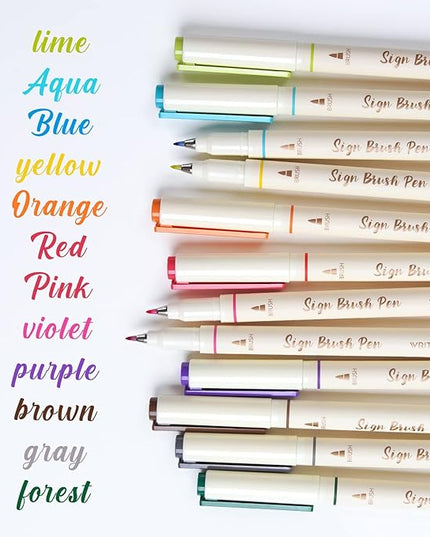 lime
Aqua
Blue
yellow
Orange
Red
Pink
violet
purple
brown
gray
forest
BRUSH Sign Br
BRUSH Sign Brush
BRUSH Sign Brush Pen
BRUSH Sign Brush Pen
BRUSH Sign Br
BRUSH Sign Br
BRUSH Sign Brush Pen
BRUSH Sign Brush Pen WRIT
BRUSH Sign B
BRUSH Sign Br
BRUSH Sign B
BRUSH Sig